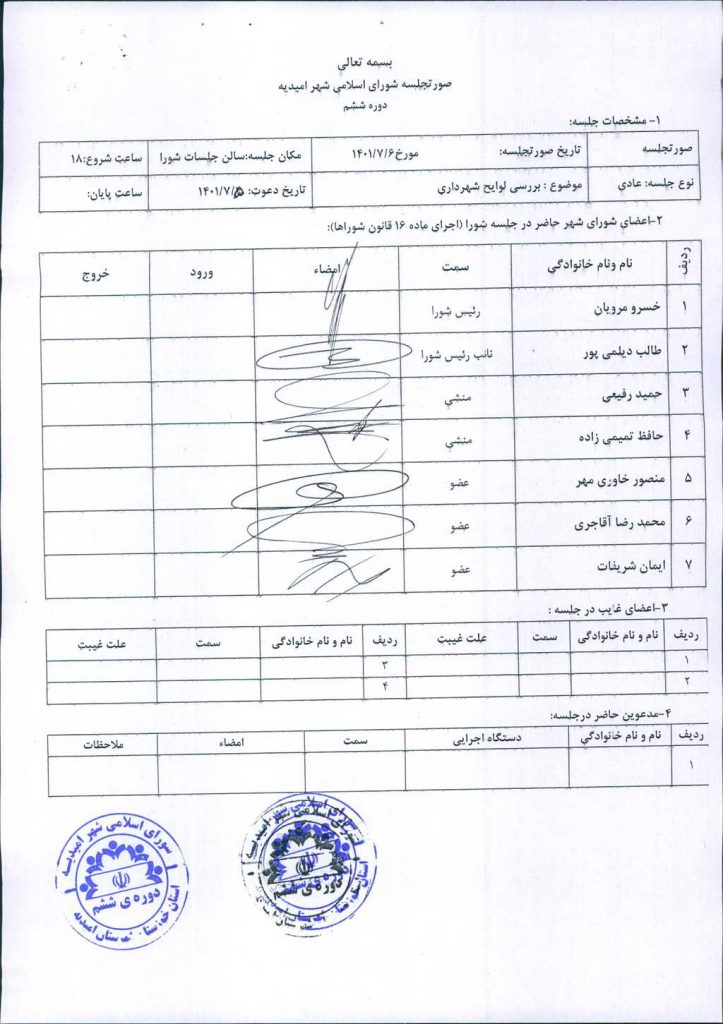 بسمه تعالي
صورتجلسه شورای اسلامي شهر اميديه
دوره ششم
۱- مشخصات جلسه:
صورتجلسه	تاريخ صورتجلسه: مورخ ۱۴۰۱/۷/۶	مکان جلسه:سالن جلسات شورا	ساعت شروع:۱۸
نوع جلسه: عادي	موضوع : بررسی لوايح شهرداری	تاريخ دعوت: ۱۴۰۱/۷/۵	ساعت پایان:
۲-اعضای شورای شهر حاضر در جلسه شورا (اجرای ماده ۱۶ قانون شوراها):
ردیف	نام ونام خانوادگی	سمت	امضاء	ورود	خروج
۱	خسرو مرویان	رئیس شورا
۲	طالب دیلمی پور	نائب رئیس شورا
۳	حمید رفیعی	منشي
۴	حافظ تمیمی زاده	منشي
۵	منصور خاوری مهر	عضو
۶	محمد رضا آقاجری	عضو
۷	ایمان شریفات	عضو
۳-اعضای غایب در جلسه :
ردیف	نام و نام خانوادگی	سمت	علت غیبت	ردیف	نام و نام خانوادگی	سمت	علت غیبت
۱	۳
۲	۴
۴-مدعوین حاضر درجلسه:
ردیف	نام و نام خانوادگی	دستگاه اجرایی	سمت	امضاء	ملاحظات
۱
شورای اسلامی شهر امیدیه
دوره ی ششم
استان خوزستان شهرستان امیدیه
شورای اسلامی شهر
دوره ی ششم
استان خوزستان